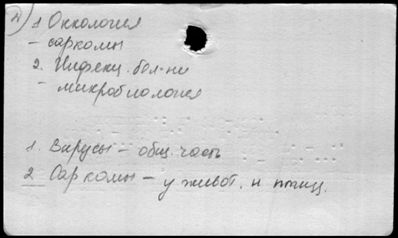 1 Онкология
- саркомы
2. Инфекц. бол-ни
- микробиология
1. Вирусы - общ. часть
2 Саркомы - у живот. и птиц.